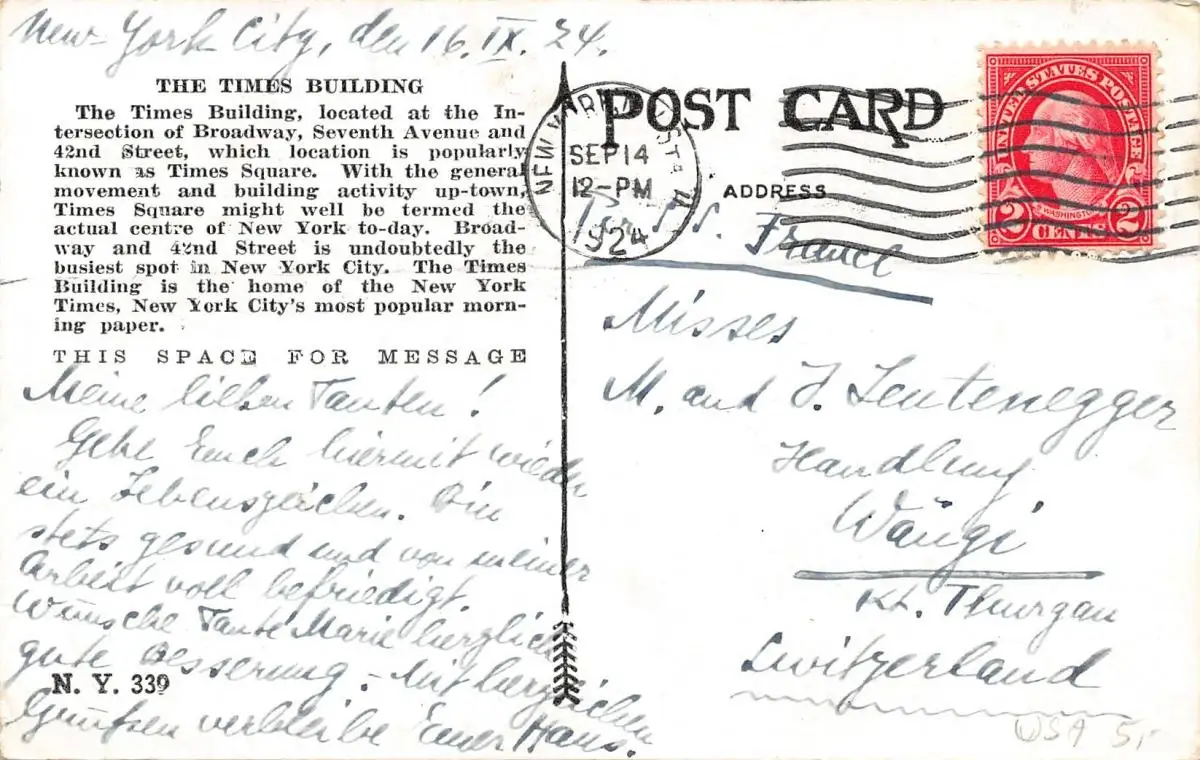 New-York City, den 16. IX. 24.
THE TIMES BUILDING
The Times Building, located at the In-
tersection of Broadway, Seventh Avenue and
42nd Street, which location is popularly
known as Times Square. With the general
movement and building activity up-town,
Times Square might well be termed the
actual centre of New York to-day. Broad-
way and 42nd Street is undoubtedly the
busiest spot in New York City. The Times
Building is the home of the New York
Times, New York City's most popular morn-
ing paper.
THIS SPACE FOR MESSAGE
Meine lieben Tanten!
Gebe Euch hiermit wieder
ein Lebenszeichen. Bin
stets gesund und von meiner
Arbeit voll befriedigt.
Wünsche Tante Marie herzlich
gute Besserung. - Mit herzlichen
Grüßen verbleibe Euer Hans.
N. Y. 339
POST CARD
NEW YARK
SEP 14
12-PM
1924
ADDRESS
UNITED STATES POSTAGE
WASHINGTON
2 CENTS 2
S.S. France
Misses
M. and J. Leutenegger
Handlung
Wängi
Kt. Thurgau
Switzerland
USA 5.-